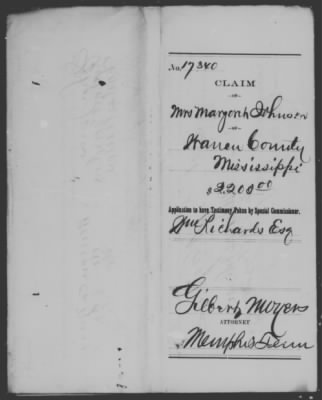 No. 17340
CLAIM
—OF—
Mrs Margaret Johnson
—OF—
Warren County
Mississippi
$2200.00
Application to have Testimony Taken by Special Commissioner.
Wm Richards Esq
Gilbert Moyers
ATTORNEY
Memphis Tenn